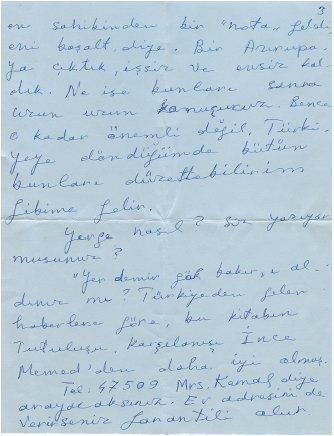 3
ev sahibinden bir "nota" geldi
evi boşalt diye. Bir Avrupa-
ya çıktık, işsiz ve evsiz kal-
dık. Ne ise bunları sonra
uzun uzun konuşuruz. Bence
o kadar önemli değil, Türki-
yeye döndüğümde bütün
bunları düzeltebilirim
gibime gelir.
Yenge nasıl? Şiir yazıyor
musunuz?
"Yer demir gök bakır,, ı al-
dınız mı? Türkiyeden gelen
haberlere göre, bu kitabın
Tutuluşu, karşılanışı İnce
Memed'den daha iyi olmuş.
Tel: 47509 Mrs. Kemal, diye
arayacaksınız. Ev adresini de
verirseniz olur.